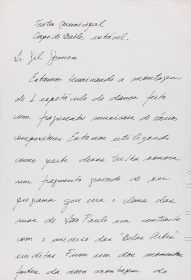 Teatro municipal
Corpo de baile, estável.
Sr. Gil Gomes
Estamos terminando a montagem
de 1 espetáculo de dança feito
com fragmentos musicais de vários
compositores Estamos utilizando
como parte dessa trilha sonora
um fragmento gravado de seu
programa que cria o clima das
ruas de São Paulo em contraste
com a música das "Belas Artes"
eruditas Ficou um dos momentos
fortes da nova montagem do